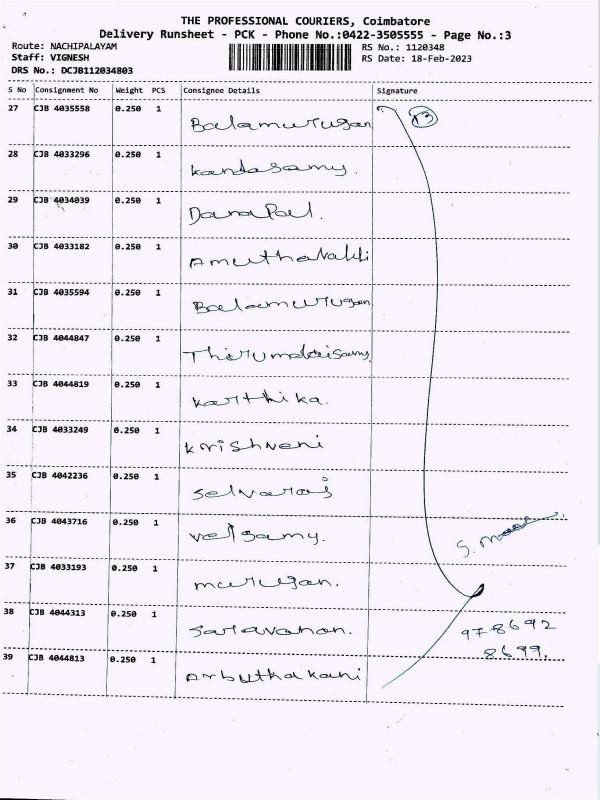 THE PROFESSIONAL COURIERS, Coimbatore
Delivery Runsheet - PCK - Phone No.:0422-3505555 - Page No.:3
Route: NACHIPALAYAM RS No.: 1120348
Staff: VIGNESH RS Date: 18-Feb-2023
DRS No.: DCJB112034803
S No Consignment No Weight PCS Consignee Details Signature
27 CJB 4035558 0.250 1 Balamurugan 13
28 CJB 4033296 0.250 1 Kandasamy.
29 CJB 4034039 0.250 1 DanaPal.
30 CJB 4033182 0.250 1 Amuthavalli
31 CJB 4035594 0.250 1 Balamurugan
32 CJB 4044847 0.250 1 Thirumalaisamy
33 CJB 4044819 0.250 1 Karthika.
34 CJB 4033249 0.250 1 Krishveni
35 CJB 4042236 0.250 1 Selvaraj
36 CJB 4043716 0.250 1 Velsamy.
37 CJB 4033193 0.250 1 Murugan.
38 CJB 4044313 0.250 1 Saravanan. 978692
8699.
39 CJB 4044813 0.250 1 Arbuthakani